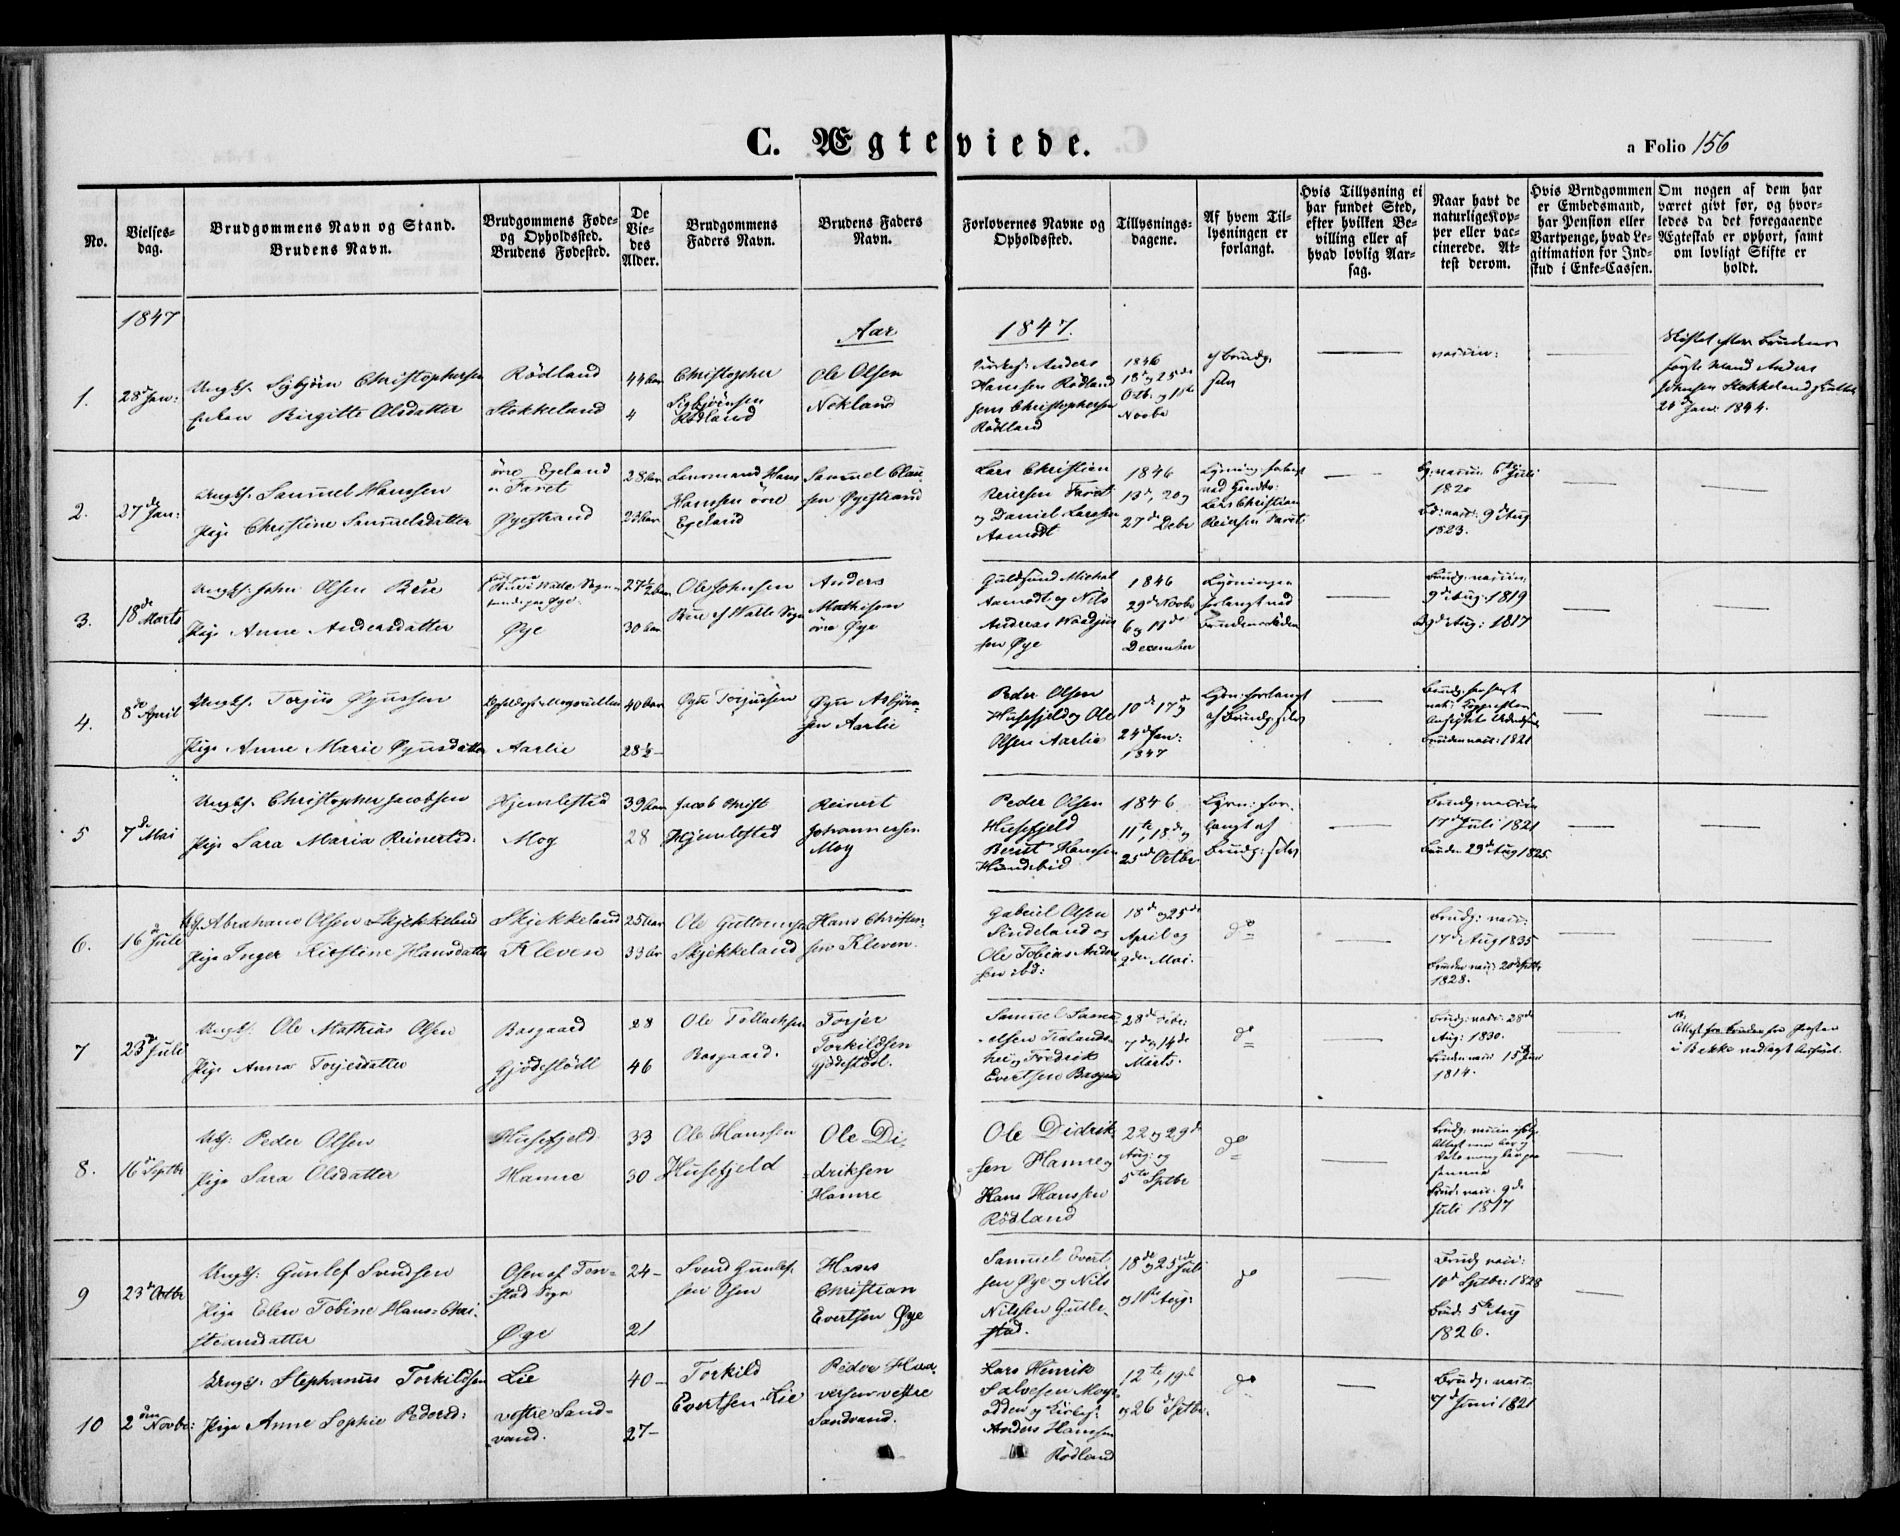 C. Ægteviede.
a Folio 156
No.
Vielses-
dag.
Brudgommens Navn og Stand.
Brudens Navn.
Brudgommens Føde-
og Opholdssted.
Brudens Fødested.
De
Vie-
des
Alder.
Brudgommens
Faders Navn.
Brudens Faders
Navn.
Forlovernes Navne og
Opholdssted.
Tillysnings-
dagene.
Af hvem Til-
lysningen er
forlangt.
Hvis Tillysning ei
har fundet Sted,
efter hvilken Be-
villing eller af
hvad lovlig Aar-
sag.
Naar havt de
naturlige Kop-
per eller vac-
cinerede. At-
test derom.
Hvis Brudgommen
er Embedsmand,
har Pension eller
Vartpenge, hvad Le-
gitimation for Ind-
skud i Enke-Cassen.
Om nogen af dem har
været givt før, og hvor-
ledes da det foregaaende
Ægteskab er ophørt, samt
om lovligt Skifte er
holdt.
1847
Aar
1847.
1.
28d Jan:
Ungk. Sigbjörn Christophersen
Enken Birgitte Olsdatter
Rödland
Stokkeland
44 Aar
Christopher
Sigbjörnsen
Rödland
Ole Olsen
Anders
Hanssen Rödland
Jens Christophersen
Rödland
1846
18de og 25de
Octb. og 1ste
Novbr
af Brudg.
selv
Skiftet efter Brudens
første Mand Anders
Stokkeland
Jan: 1844.
2.
27de Jan:
Ungk. Samuel Hanssen
Pige Christine Samuelsdatter
övre Egeland
Faret
Øyestrand
28 Aar
23 Aar
Lensmand Hans
Hanssen övre
Egeland
Samuel Clau-
sen Øyestrand
Lars Christian
Reiersen Faret
og Daniel Larssen
Aamodt
1846
13de, 20 og
27de Decbr
Lars Christian
Reiersen Faret
Juli
1820
9d Aug
1823.
3.
18de Marts
Ungk. John Olsen Bue
Pige Anne Andersdatter
Øye
27½ Aar
30 Aar
Ole Johnsen
Bue af Walle Sogn
Anders
Mathisen
övre Øye
Guldsmd Michal
Aamodt og Nils
Andreas
sen Øye
1846
29de Novbr
6 og 13de
December
Lysningen
forlangt ved
Brudens Fader
Brudg. vaccin.
9de Aug. 1819
Aug: 1817
4.
8de April
Ungk. Torjus Øyussen
Pige Anne Marie Øyusdatter
Aarlie
40 Aar
28½ –
Øyu Torjussen
Øyu Asbjörn-
sen Aarlie
Peder Olsen
Husefjeld og Ole
Olsen Aarlie
10de 17 og
24d Jan:
1847
Lysn: forlangt
af Brudg: selv
Bruden vacc: 1821
5
7de Mai
Ungk. Christopher Jacobsen
Pige Sara Maria Reinertsd:
Hjemlestad
Moy
39 Aar
28
Jacob Christ
Hjemlestad
Reinert
Johannessen
Moy
Peder Olsen
Husefjeld
Berent Hanssen
1846
11te, 18de og
25de Octbr
Lysn: for-
langt af
Brudg: selv
Brudg: vaccin
17d Juli 1821
Bruden 29d Aug 1825.
6.
16d Juli
Abraham Olsen Skjekkeland
Pige Inger Kirstine Hansdatter
Skjekkeland
Kleven
25 Aar
33 Ar
Ole Guttormsen
Skjekkeland
Hans Christen-
sen Kleven.
Gabriel Olsen
og
Ole Tobias Ander-
sen ibd:
18de og 25de
April og
2den Mai.
do
Brudg: vacc:
17d Aug 1835
Bruden vacc: 20d Septbr
1828.
7
23de Juli
Ungk: Ole Mathias Olsen
Pige Anna Torjesdatter
Basgaard
Gjödestödl
28
46
Ole Tollachsen
Basgaard.
Torjer
Torkildsen
Gjödestödl.
Samuel Samu-
elsen
hei og Fredrik
Evertsen Basgaard
28de Febr:
7de og 14de
Marts.
do
Brudg: vacc: 28de
Aug: 1830.
Bruden vacc 15d Juni
1814.
Attest for Bruden fra Præsten
i Bakke vedlagt
8.
16d Septbr
Uk: Peder Olsen
Pige Sara Olsdatter
Husefjeld
Hamre
33
30
Ole Hanssen
Husefjeld
Ole Di-
driksen
Hamre
Ole Didrik-
sen Hamre og
Hans Hanssen
Rödland
22 og 29de
Aug: og
5te Septbr
do
Brud: vacc: 9de
Juli 1817
9
23d Octbr
Ungk: Gunlef Svendsen
Pige Elen Tobine Hans-Chri-
stiansdatter
Osen af Ton-
stad Sogn
Øye
24 –
21
Svend Gunlef-
sen Osen
Hans
Christian
Evertsen Øye
Samuel Evert-
sen Øye og Nils
Nilssen Gulle-
stad.
18de og 25de Juli
og 1ste Aug:
do
Brudg vacc:
10d Septbr: 1828
Brud: 5te Aug
1826.
10
2den Novbr:
Ungk. Stephanus Torkildsen
Pige Anne Sophie Pedersd:
Lie
vestre Sand-
vand.
40 –
27 –
Torkild
Evertsen Lie
Peder Haa-
versen vestre
Sandvand.
Lars Henrik
Salvesen Moy-
odden og
Anders Hanssen
Rödland
12te, 19de
og 26d Septbr.
do
Brudg: vacc.
7d Juni 1821